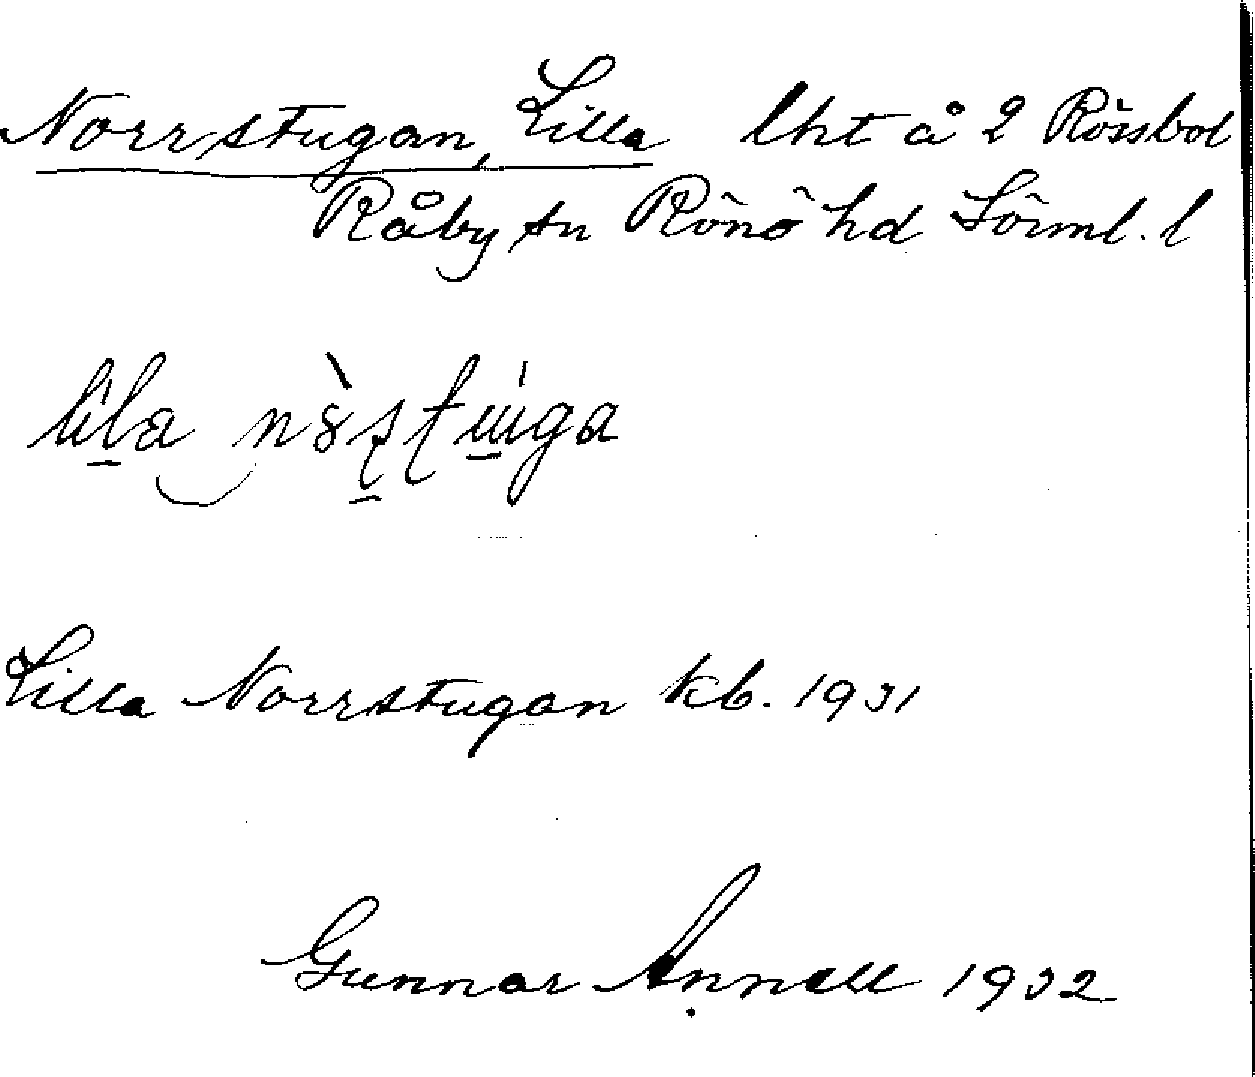 Norrstugan, Lilla lht å 2 Rössbol
Råby sn Rönö hd Sörml. l
Lilla Norrstugan kb. 1931
Gunnar Annell 1932